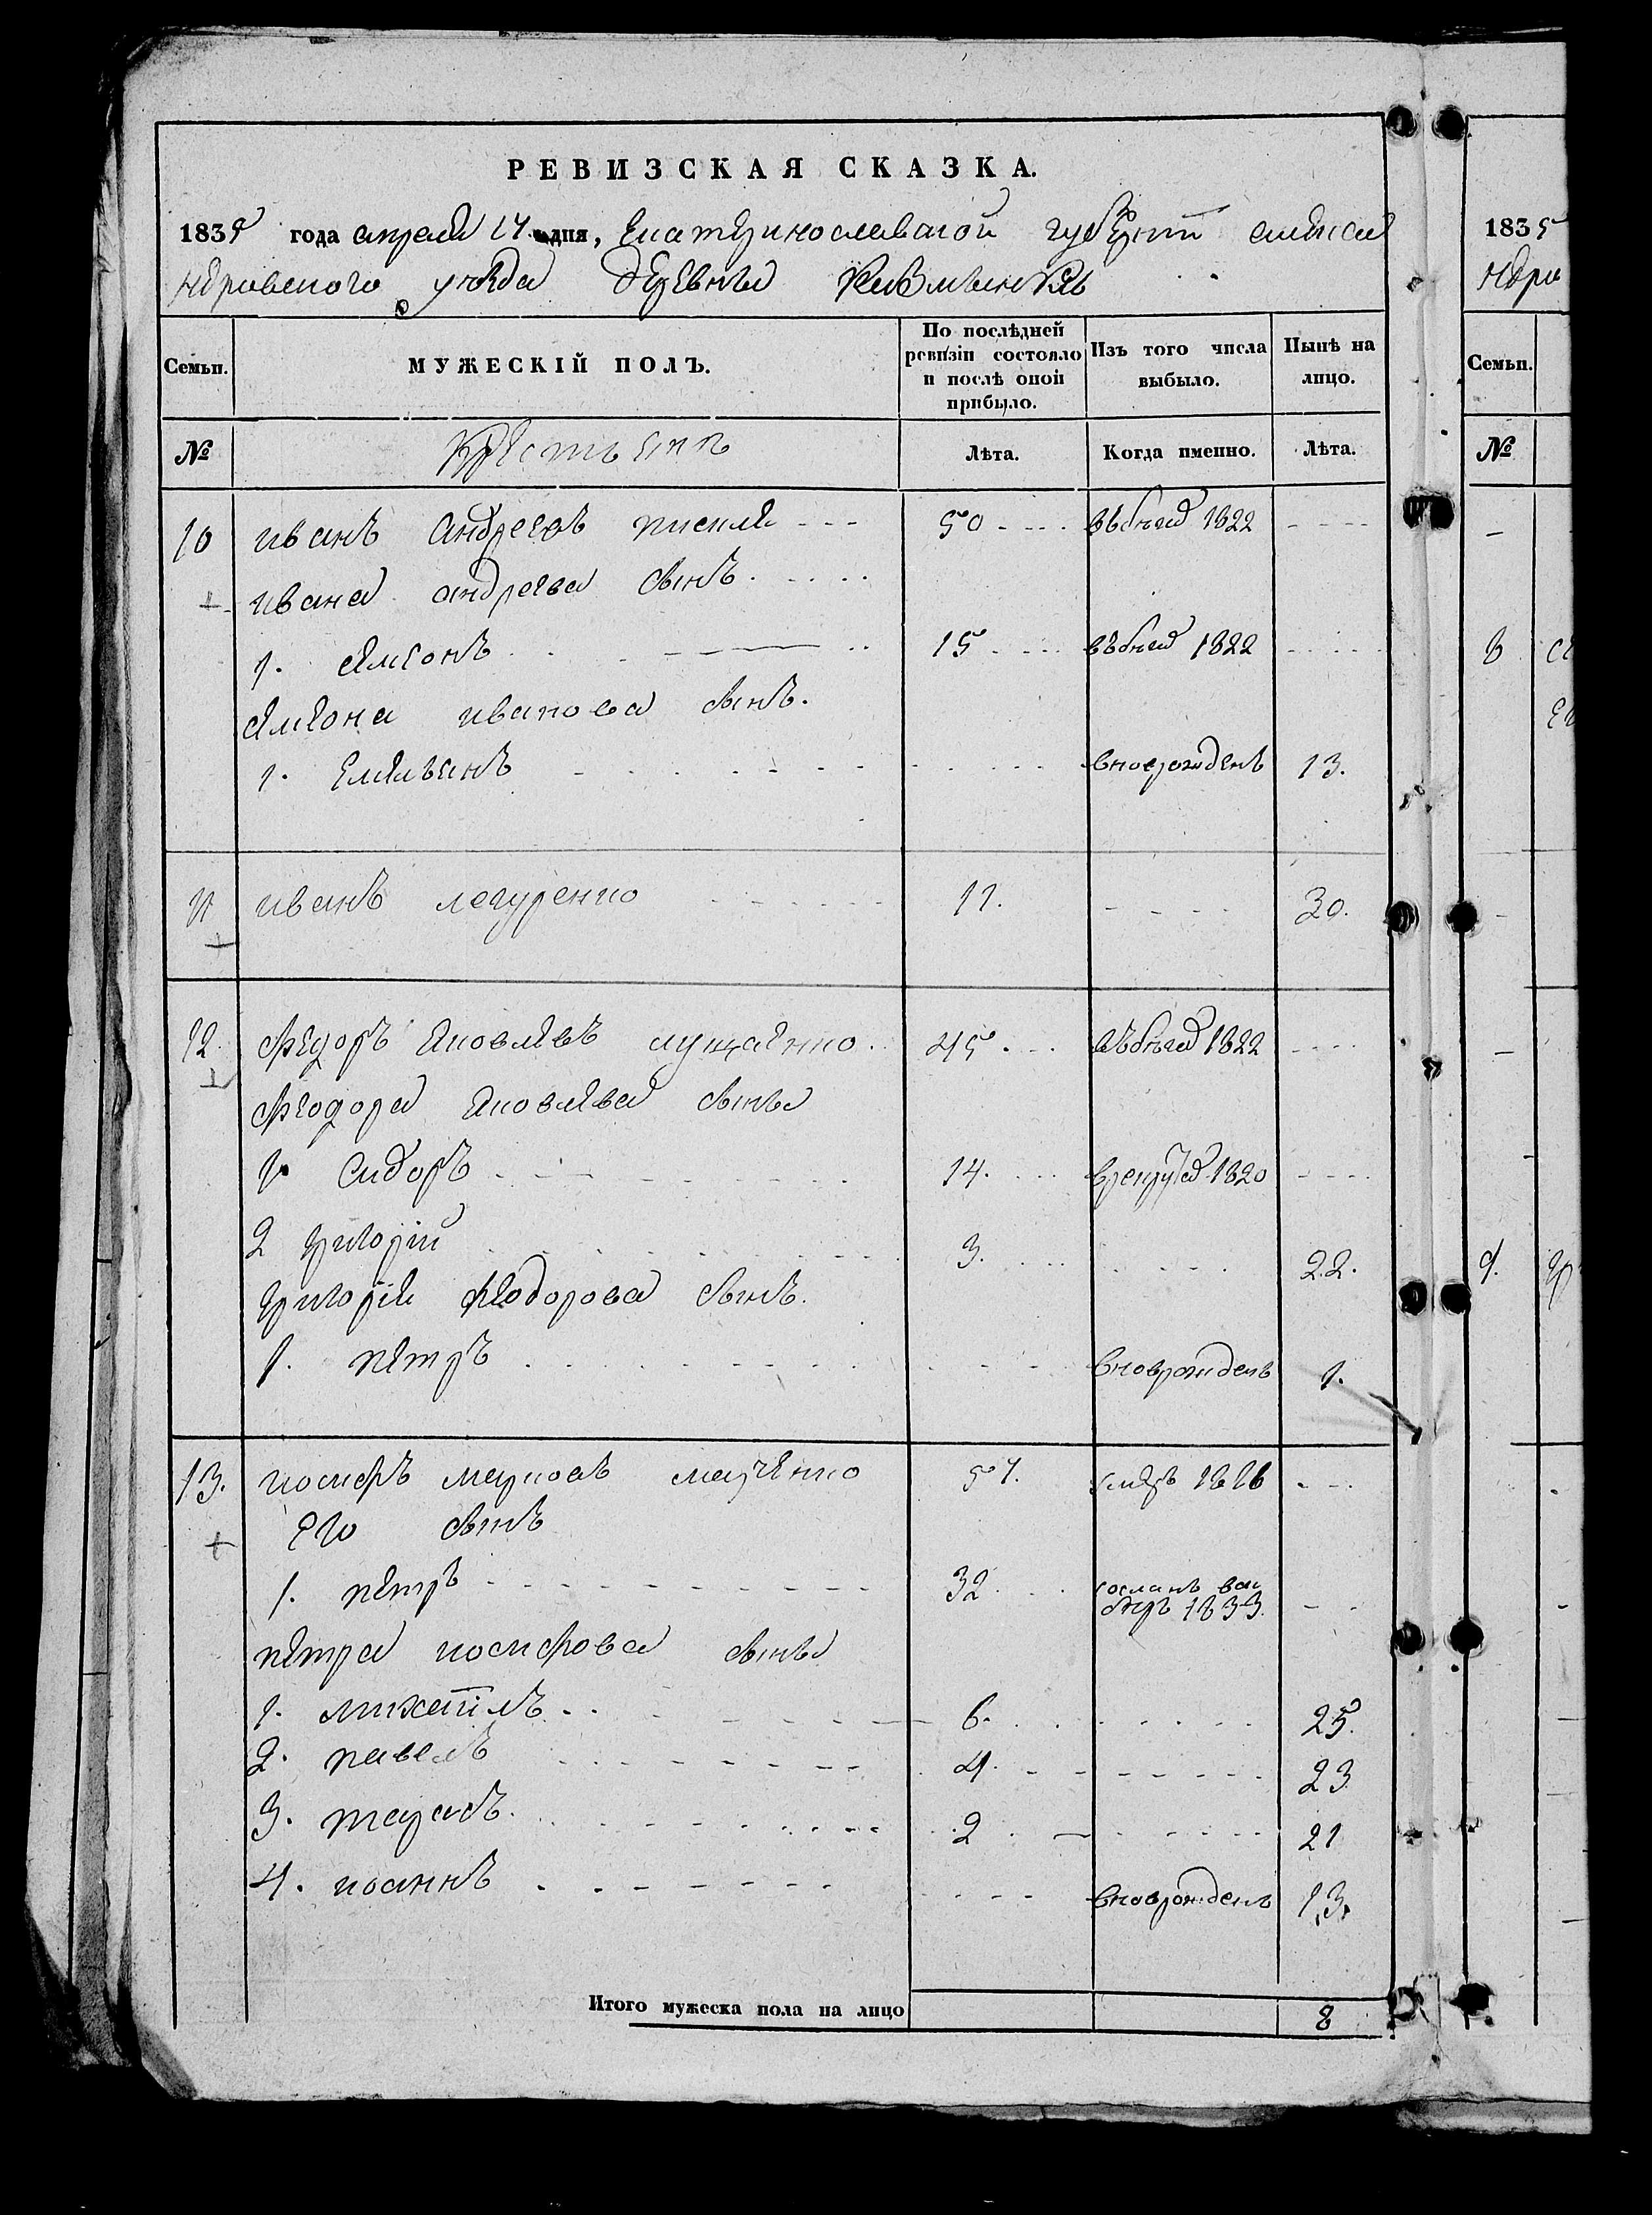 РЕВИЗСКАЯ СКАЗКА.
1835 года апреля 14 дня, Екатеринославской губернии алексан
1835
ндровского уезда деревни
Ндро
Семьи.
МУЖЕСКІЙ ПОЛЪ.
По послѣдней ревизіи состояло и послѣ оной прибыло.
Изъ того числа выбыло.
Нынѣ на лицо.
Семьи.
№ Крестьяне Лѣта. Когда именно. Лѣта. №
10 иванъ Андреевъ 50 въбегах 1822
ивана андреева сынъ
1. Симеонъ 15 въбегах 1822
Симеона иванова сынъ.
1. Емельянъ вноврожденъ 13.
11 иванъ 11. 30.
12. Феодоръ Яковлевъ 45 въбегах 1822
Феодора Яковлева сыны
1. Сидоръ 14. врекруты 1820
2 григорій 3. 22.
григорія феодорова сынъ.
1. петръ вноврожденъ 1.
13. иосифъ марковъ марченко 57. умеръ 1816
его сынъ
1. петръ 32 сосланъ вси
бирь 1833.
петра иосифова сыны
1. михаилъ 6. 25.
2. павелъ 4. 23
3. тарасъ. 2 21
4. иоаннъ вноврожденъ 13.
Итого мужеска пола на лицо 8